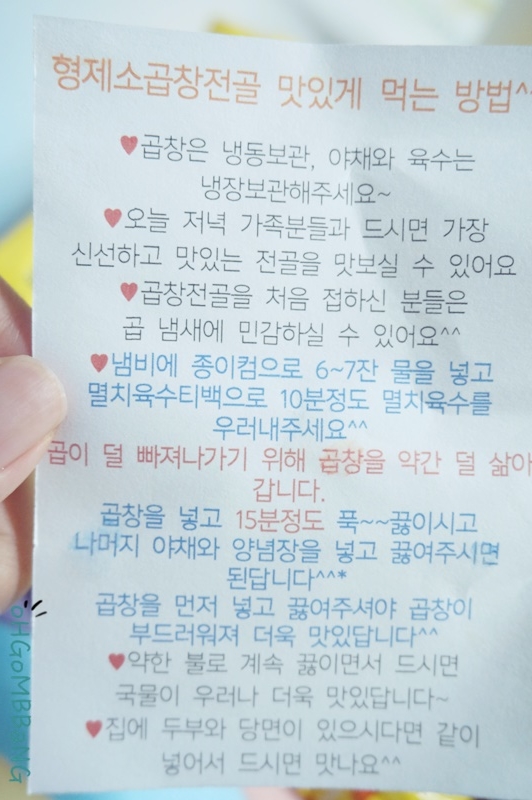 형제소곱창전골 맛있게 먹는 방법^^
♥곱창은 냉동보관, 야채와 육수는
냉장보관해주세요~
♥오늘 저녁 가족분들과 드시면 가장
신선하고 맛있는 전골을 맛보실 수 있어요
♥곱창전골을 처음 접하신 분들은
곱 냄새에 민감하실 수 있어요^^
♥냄비에 종이컵으로 6~7잔 물을 넣고
멸치육수티백으로 10분정도 멸치육수를
우러내주세요^^
곱이 덜 빠져나가기 위해 곱창을 약간 덜 삶아
갑니다.
곱창을 넣고 15분정도 푹~~끓이시고
나머지 야채와 양념장을 넣고 끓여주시면
된답니다^^*
곱창을 먼저 넣고 끓여주셔야 곱창이
부드러워져 더욱 맛있답니다^^
♥약한 불로 계속 끓이면서 드시면
국물이 우러나 더욱 맛있답니다~
♥집에 두부와 당면이 있으시다면 같이
넣어서 드시면 맛나요^^